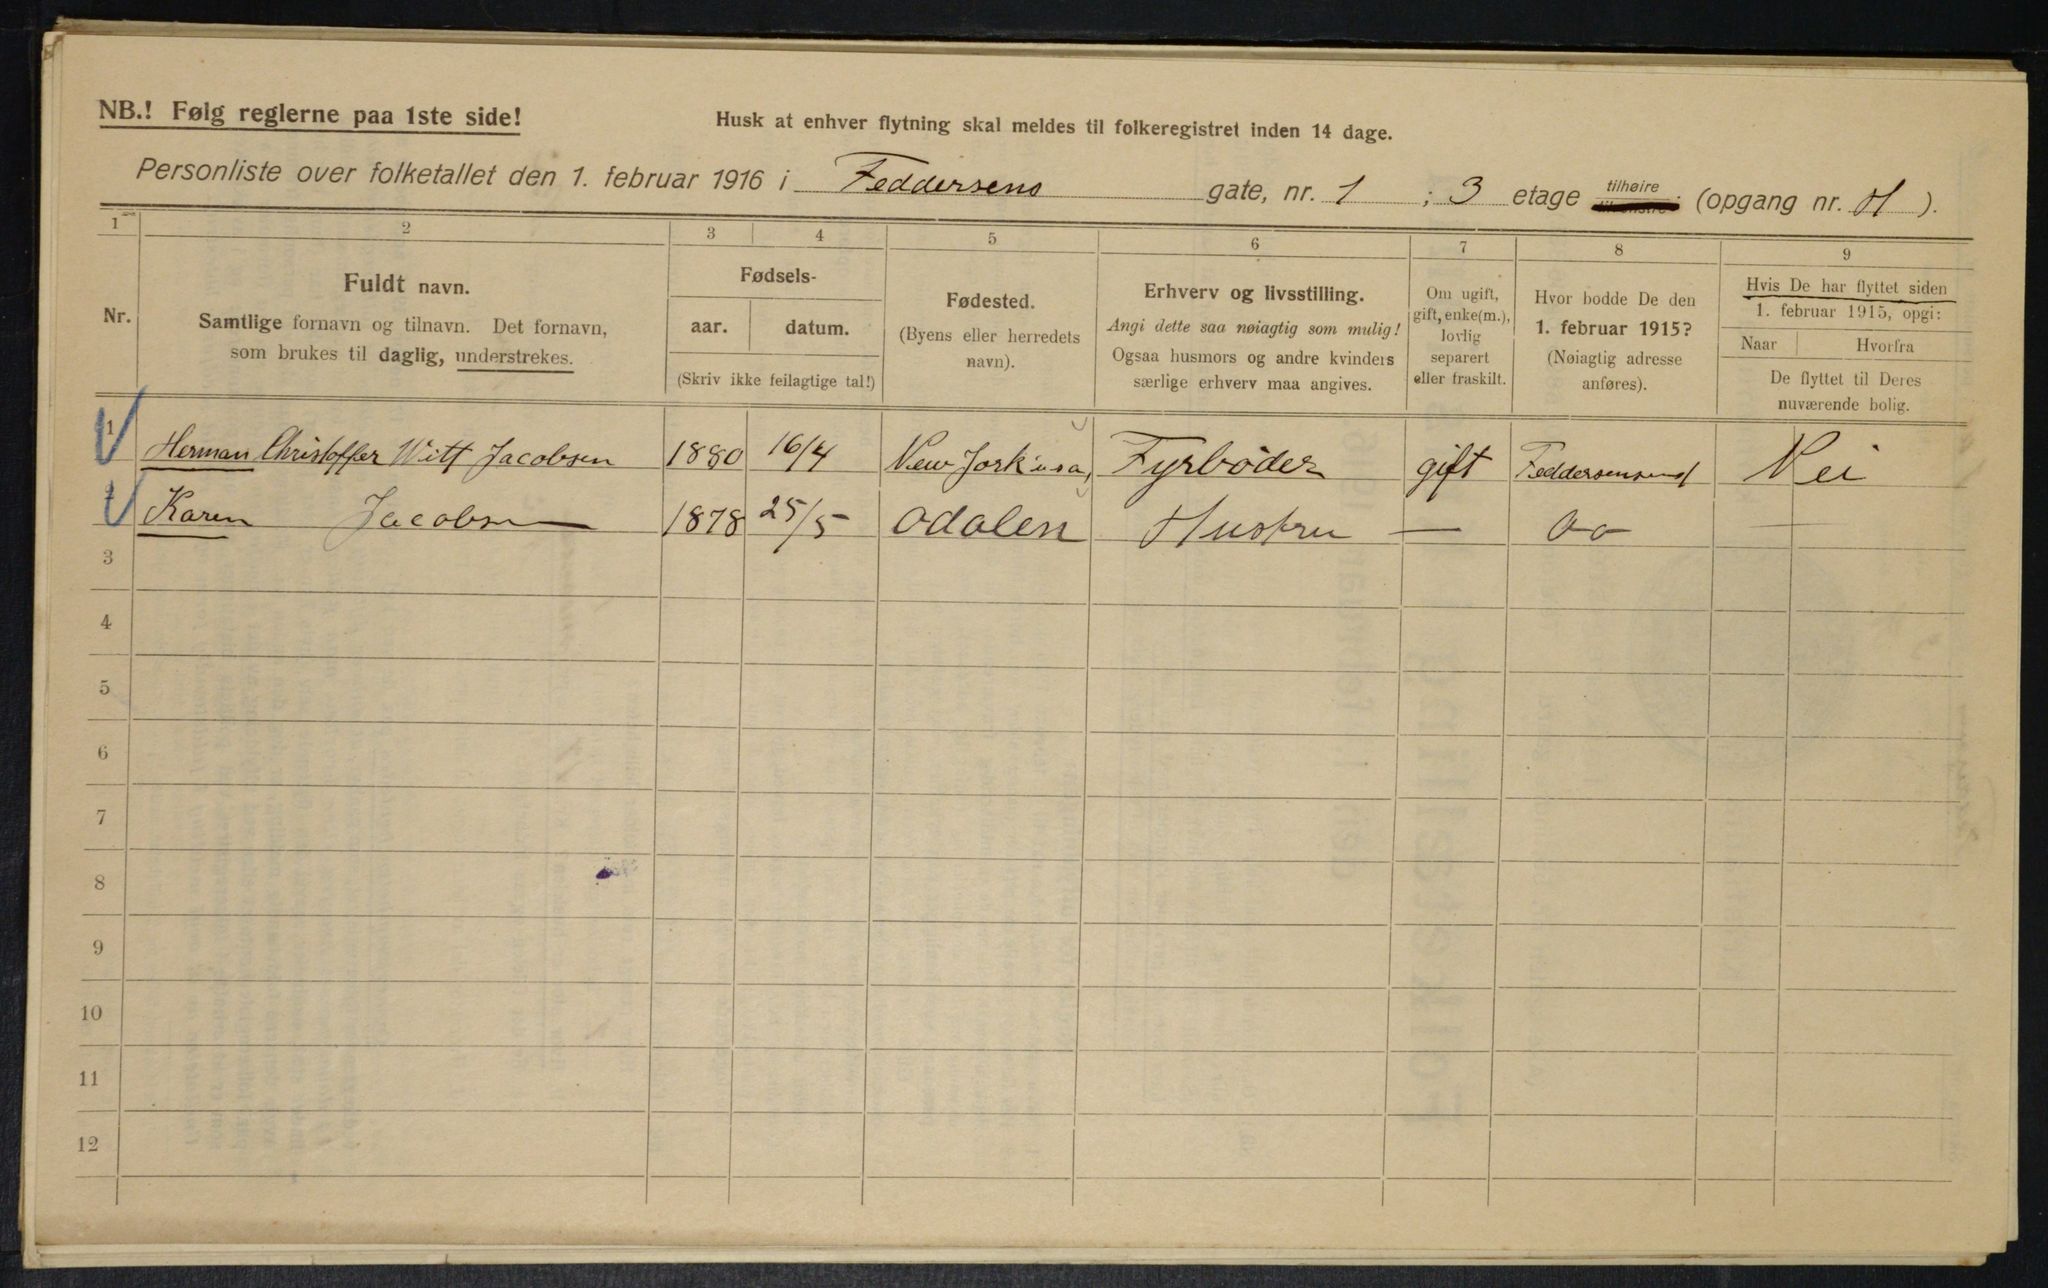 NB.! Følg reglerne paa 1ste side!
Husk at enhver flytning skal meldes til folkeregistret inden 14 dage.
Personliste over folketallet den 1. februar 1916 i Feddersens gate, nr. 1 ; 3 etage tilhøire (opgang nr. H ).
1 2 3 4 5 6 7 8 9
Nr.
Fuldt navn.
Samtlige fornavn og tilnavn. Det fornavn,
som brukes til daglig, understrekes.
Fødsels-
aar. datum.
(Skriv ikke feilagtige tal!)
Fødested.
(Byens eller herredets
navn).
Erhverv og livsstilling.
Angi dette saa nøiagtig som mulig!
Ogsaa husmors og andre kvinders
særlige erhverv maa angives.
Om ugift,
gift, enke(m.),
lovlig
separert
eller fraskilt.
Hvor bodde De den
1. februar 1915?
(Nøiagtig adresse
anføres).
Hvis De har flyttet siden
1. februar 1915, opgi:
Naar Hvorfra
De flyttet til Deres
nuværende bolig.
1 Herman Christoffer Witt Jacobsen 1880 16/4 New Jork usa, Fyrbøder gift Nei
2 Karen Jacobsen 1878 25/5 Odalen Hustru — —
3
4
5
6
7
8
9
10
11
12